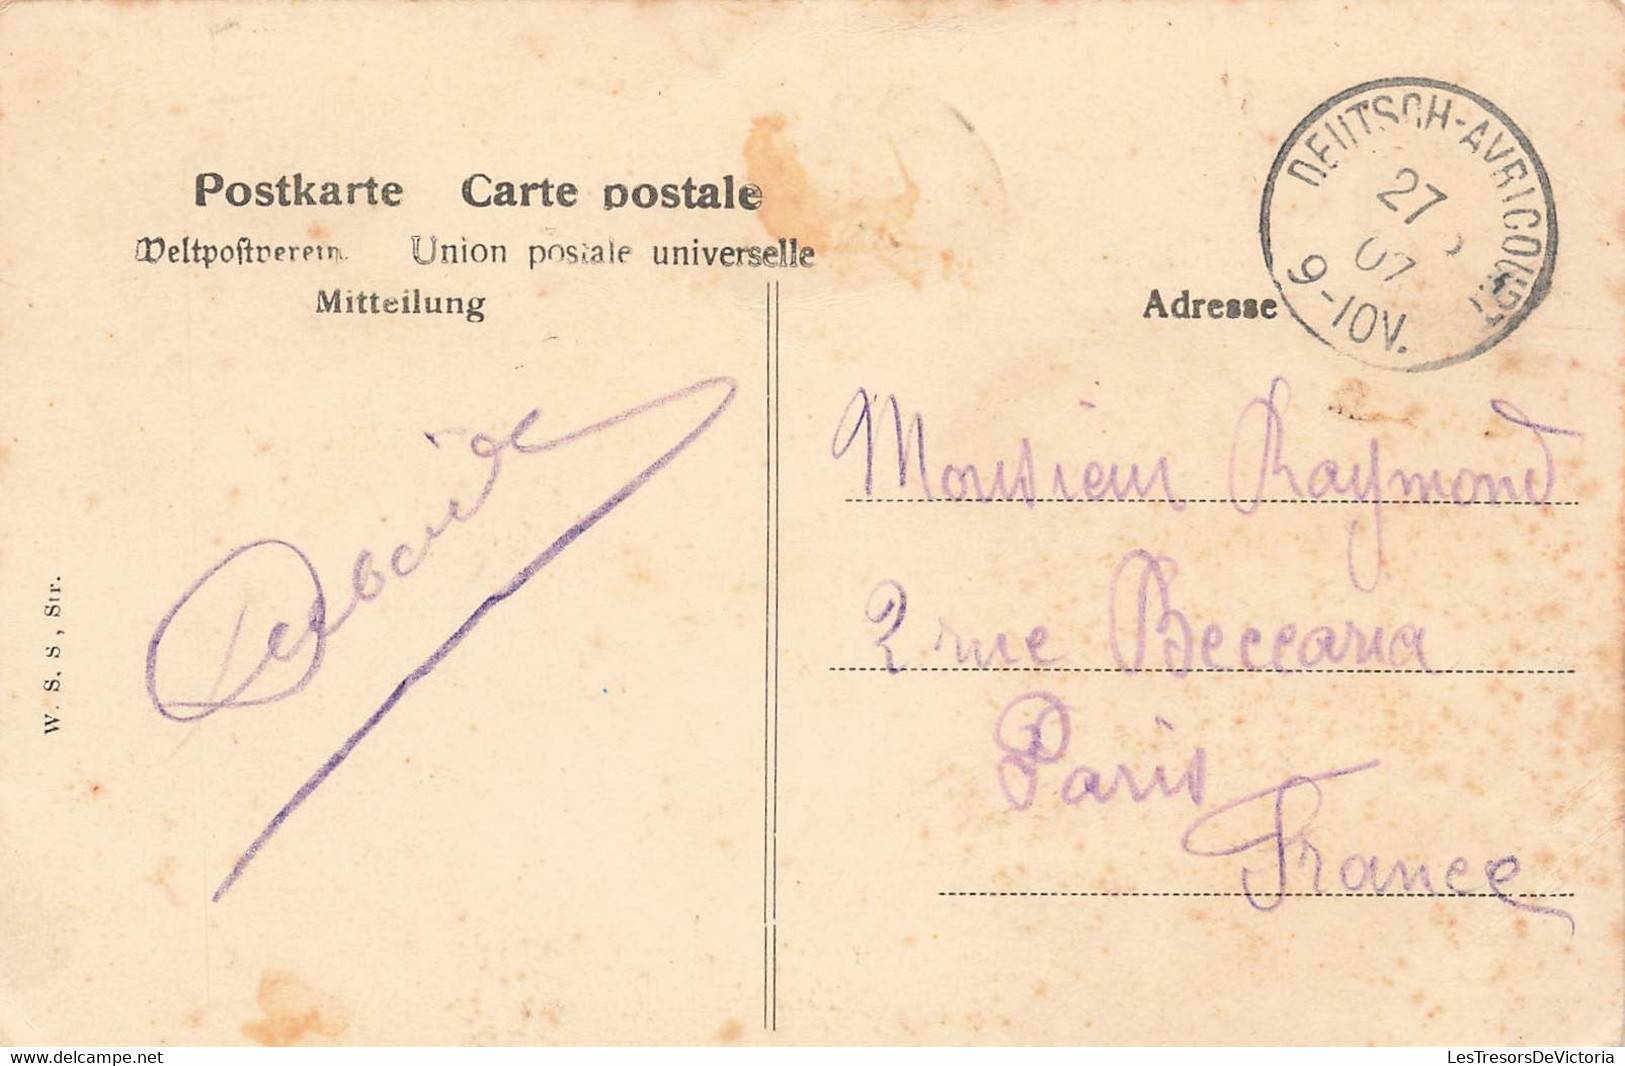 Postkarte Carte postale
Weltpostverein Union postale universelle
Mitteilung
Adresse
DEUTSCH-AVRICOURT
27
07
9-10V.
W. S. S., Str.
Monsieur Raymond
2 rue Beccaria
Paris
France
delcampe.net
LesTresorsDeVictoria